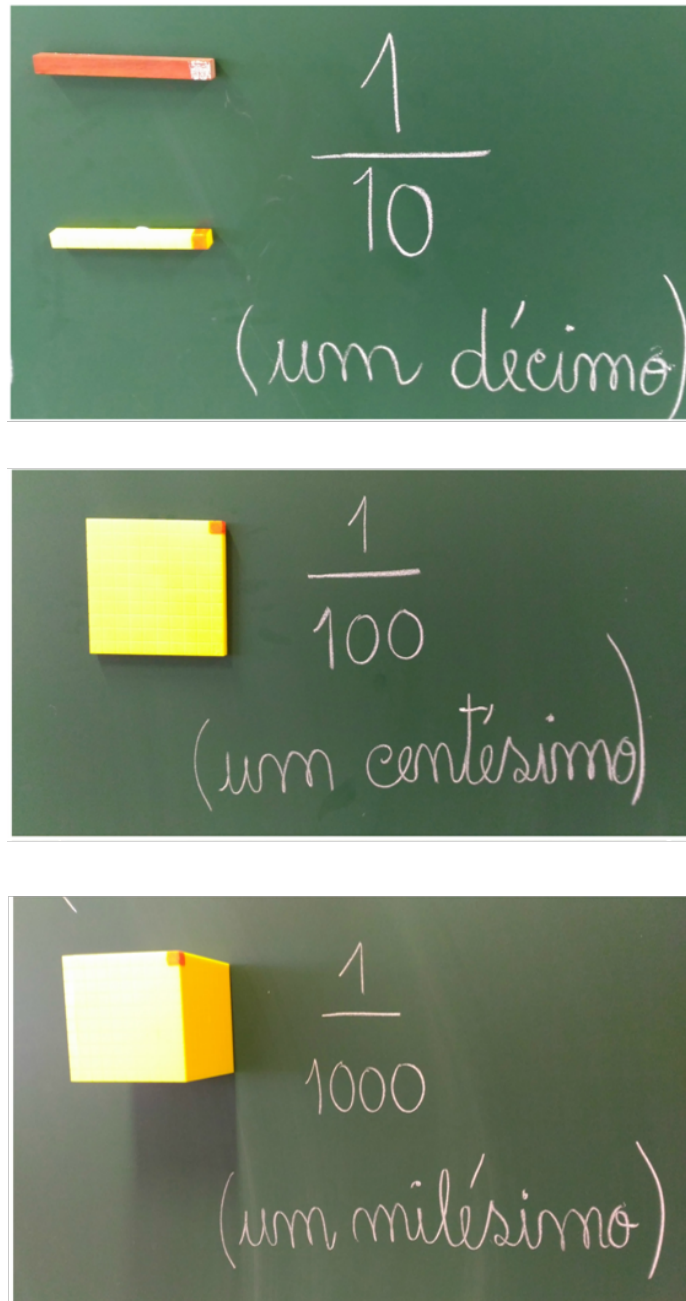 1
10
(um décimo)
1
100
(um centésimo)
1
1000
(um milésimo)